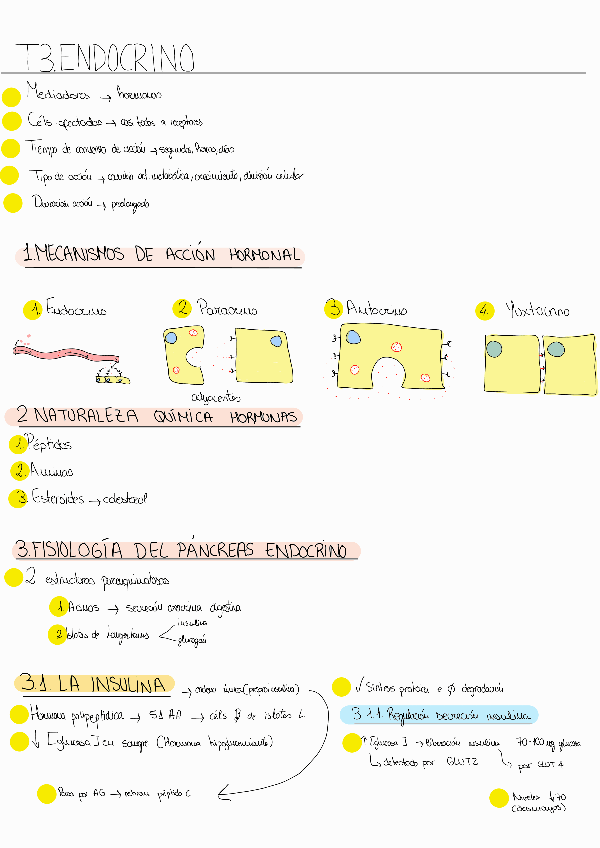 T3.ENDOCRINO
Mediadores → hormonas
Céls afectadas → cas todas → receptores
Tiempo de comienzo de acción → segundos, horas, días
Tipo de acción → control act. metabólica, crecimiento, división celular
Duración acción → prolongado
1.MECANISMOS DE ACCIÓN HORMONAL
1. Endocrino
2 Paracrino
3. Autocrino
4. Yuxtacrino
adyacentes
2 NATURALEZA QUÍMICA HORMONAS
1. Péptidos
2. Aminas
3. Esteroides → colesterol
3.FISIOLOGÍA DEL PÁNCREAS ENDOCRINO
2 estructuras parenquimatosas
1. Acinos → secreción exocrina digestiva
2. Islotes de langerhans
insulina
glucagón
3.1. LA INSULINA → cadena única (preproinsulina)
Hormona polipeptídica → 51 AA → céls β de islotes L
↓ [glucosa] en sangre (Hormona hipoglucemiante)
Pasa por AG → péptido C
✓ Síntesis proteica e degradación
3.1.1. Regulación secreción insulina
↑ [glucosa] → liberación insulina
70-100 mg glucosa
detectado por GLUT2
por GLUT4
Niveles ↓70
(desmayos)